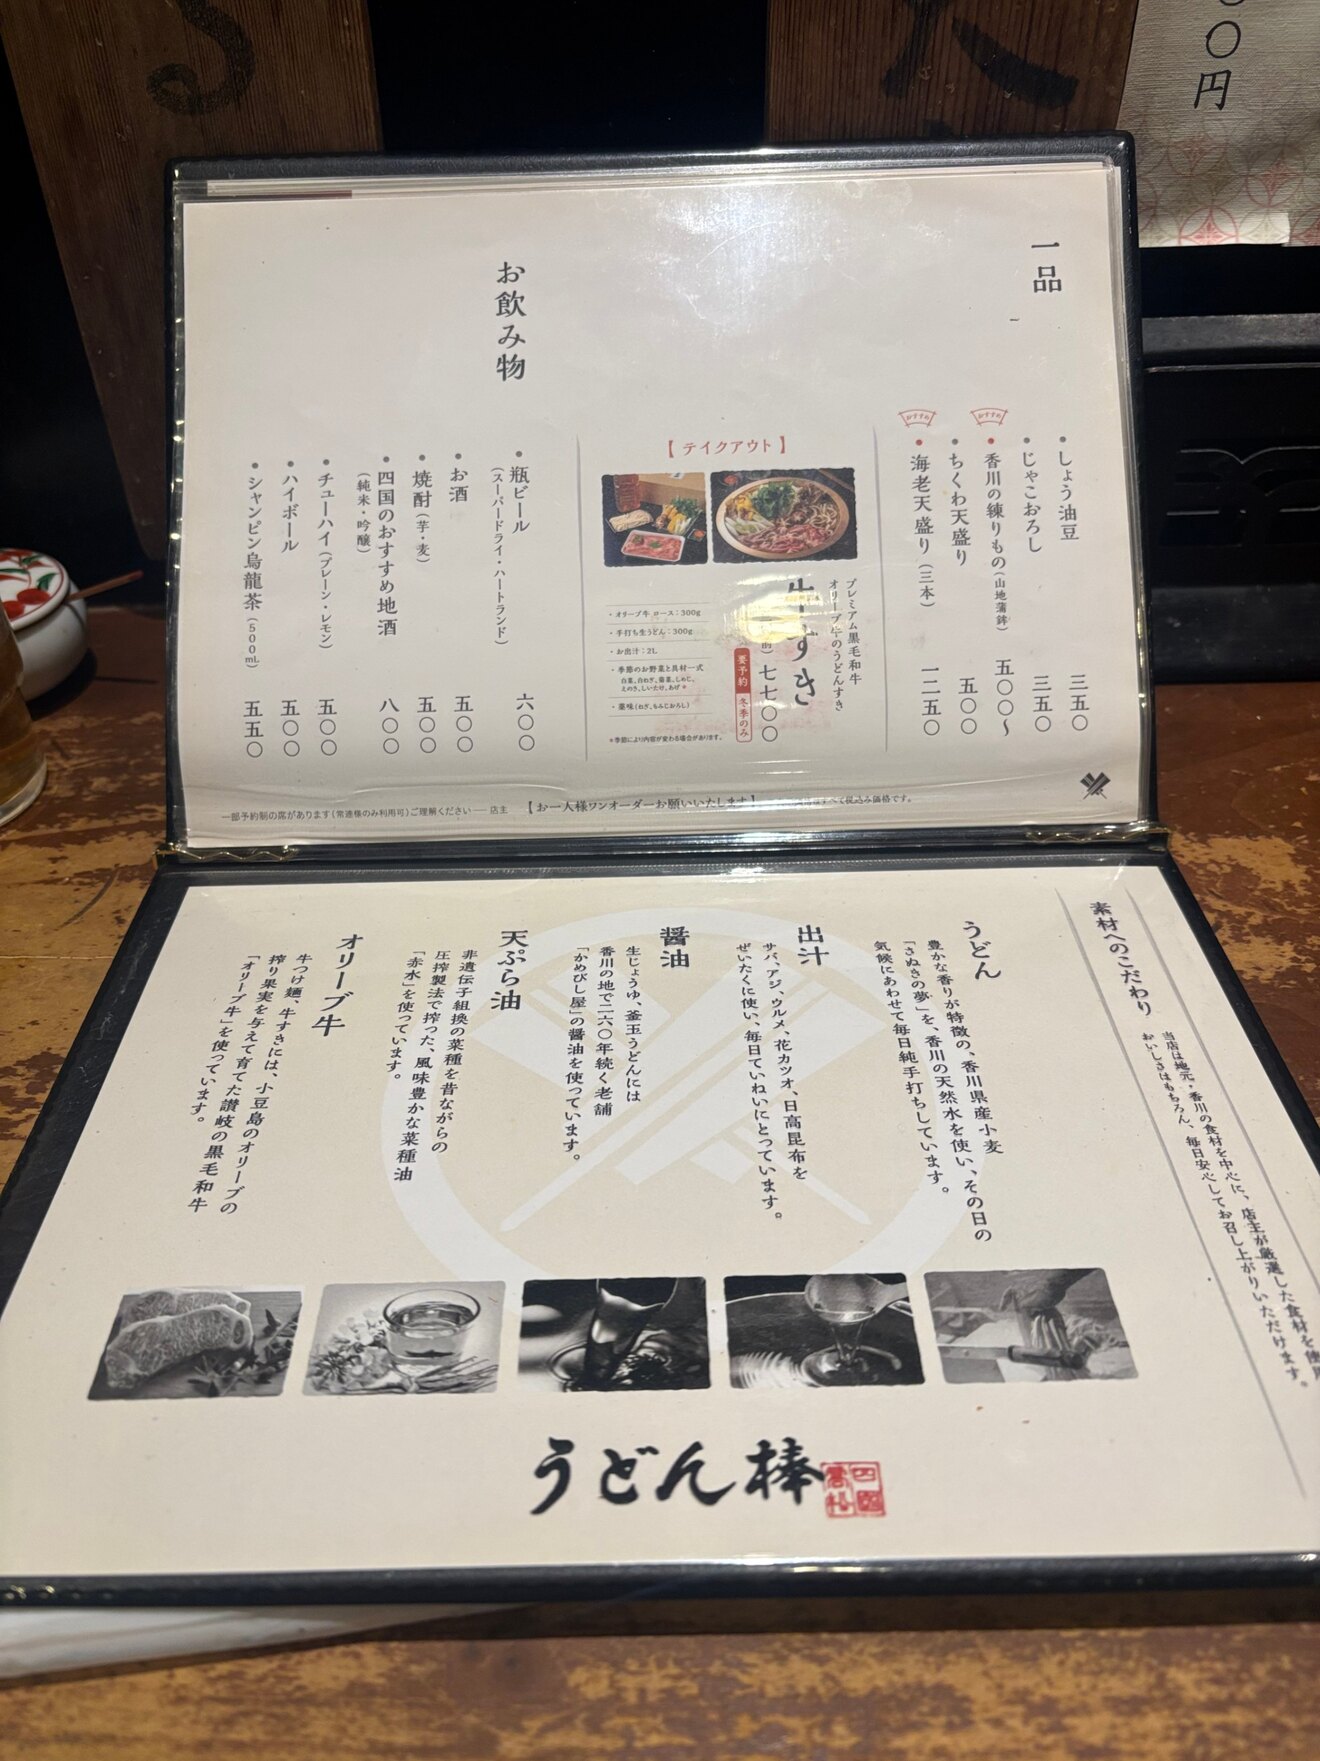 〇円
一品
しょう油豆 三五〇
じゃこおろし 三五〇
おすすめ
香川の練りもの(山地蒲鉾) 五〇〇〜
ちくわ天盛り 五〇〇
おすすめ
海老天盛り(三本) 一二五〇
【テイクアウト】
プレミアム黒毛和牛
オリーブ牛のうどんすき
牛すき
七七〇〇
要予約 冬季のみ
・オリーブ牛 ロース:300g
・手打ち生うどん:300g
・お出汁:2L
・季節のお野菜と具材一式
白菜、白ねぎ、菊菜、しめじ、
えのき、しいたけ、あげ
・薬味(ねぎ、もみじおろし)
※季節により内容が変わる場合があります。
お飲み物
瓶ビール 六〇〇
(スーパードライ・ハートランド)
お酒 五〇〇
焼酎(芋・麦) 五〇〇
四国のおすすめ地酒 八〇〇
(純米・吟醸)
チューハイ(プレーン・レモン) 五〇〇
ハイボール 五〇〇
シャンピン烏龍茶(500mL) 五五〇
一部予約制の席があります(常連様のみ利用可)ご理解ください── 店主
【お一人様ワンオーダーお願いいたします】
すべて税込み価格です。
素材へのこだわり
当店は地元・香川の食材を中心に、店主が厳選した食材を使用
おいしさはもちろん、毎日安心してお召し上がりいただけます。
うどん
豊かな香りが特徴の、香川県産小麦
「さぬきの夢」を、香川の天然水を使い、その日の
気候にあわせて毎日純手打ちしています。
出汁
サバ、アジ、ウルメ、花カツオ、日高昆布を
ぜいたくに使い、毎日ていねいにとっています。
醤油
生じょうゆ、釜玉うどんには
香川の地で二六〇年続く老舗
「かめびし屋」の醤油を使っています。
天ぷら油
非遺伝子組換の菜種を昔ながらの
圧搾製法で搾った、風味豊かな菜種油
「赤水」を使っています。
オリーブ牛
牛つけ麺、牛すきには、小豆島のオリーブの
搾り果実を与えて育てた讃岐の黒毛和牛
「オリーブ牛」を使っています。
うどん棒
四国
高松